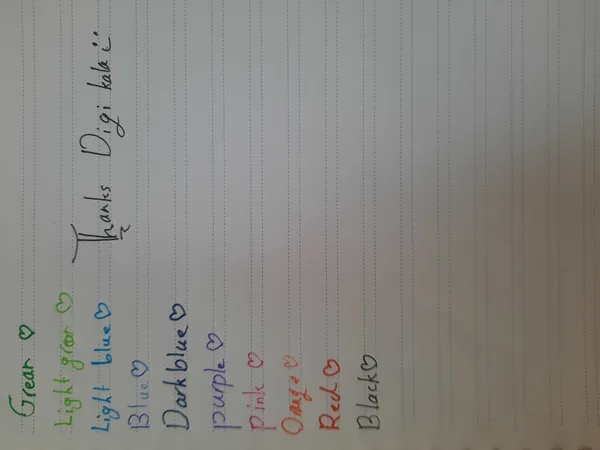 Grean ♡
Light grean ♡
Light blue ♡
Blue ♡
Dark blue ♡
purple ♡
pink ♡
Orange ♡
Red ♡
Black ♡
Thanks Digi kala :)